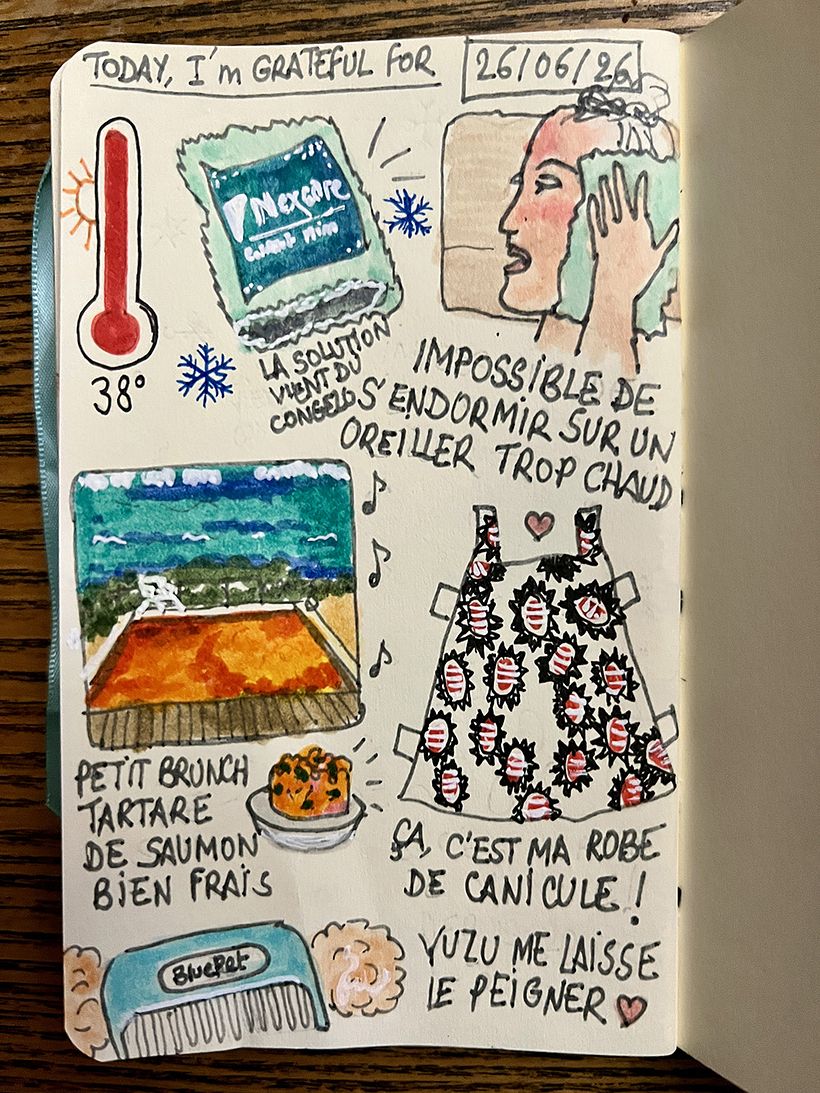 TODAY, I'm GRATEFUL FOR
26/06/26
38°
Nexcare
LA SOLUTION
VIENT DU
CONGELO
IMPOSSIBLE DE
S'ENDORMIR SUR UN
OREILLER TROP CHAUD
PETIT BRUNCH
TARTARE
DE SAUMON
BIEN FRAIS
ÇA, C'EST MA ROBE
DE CANICULE !
BluePet
YUZU ME LAISSE
LE PEIGNER